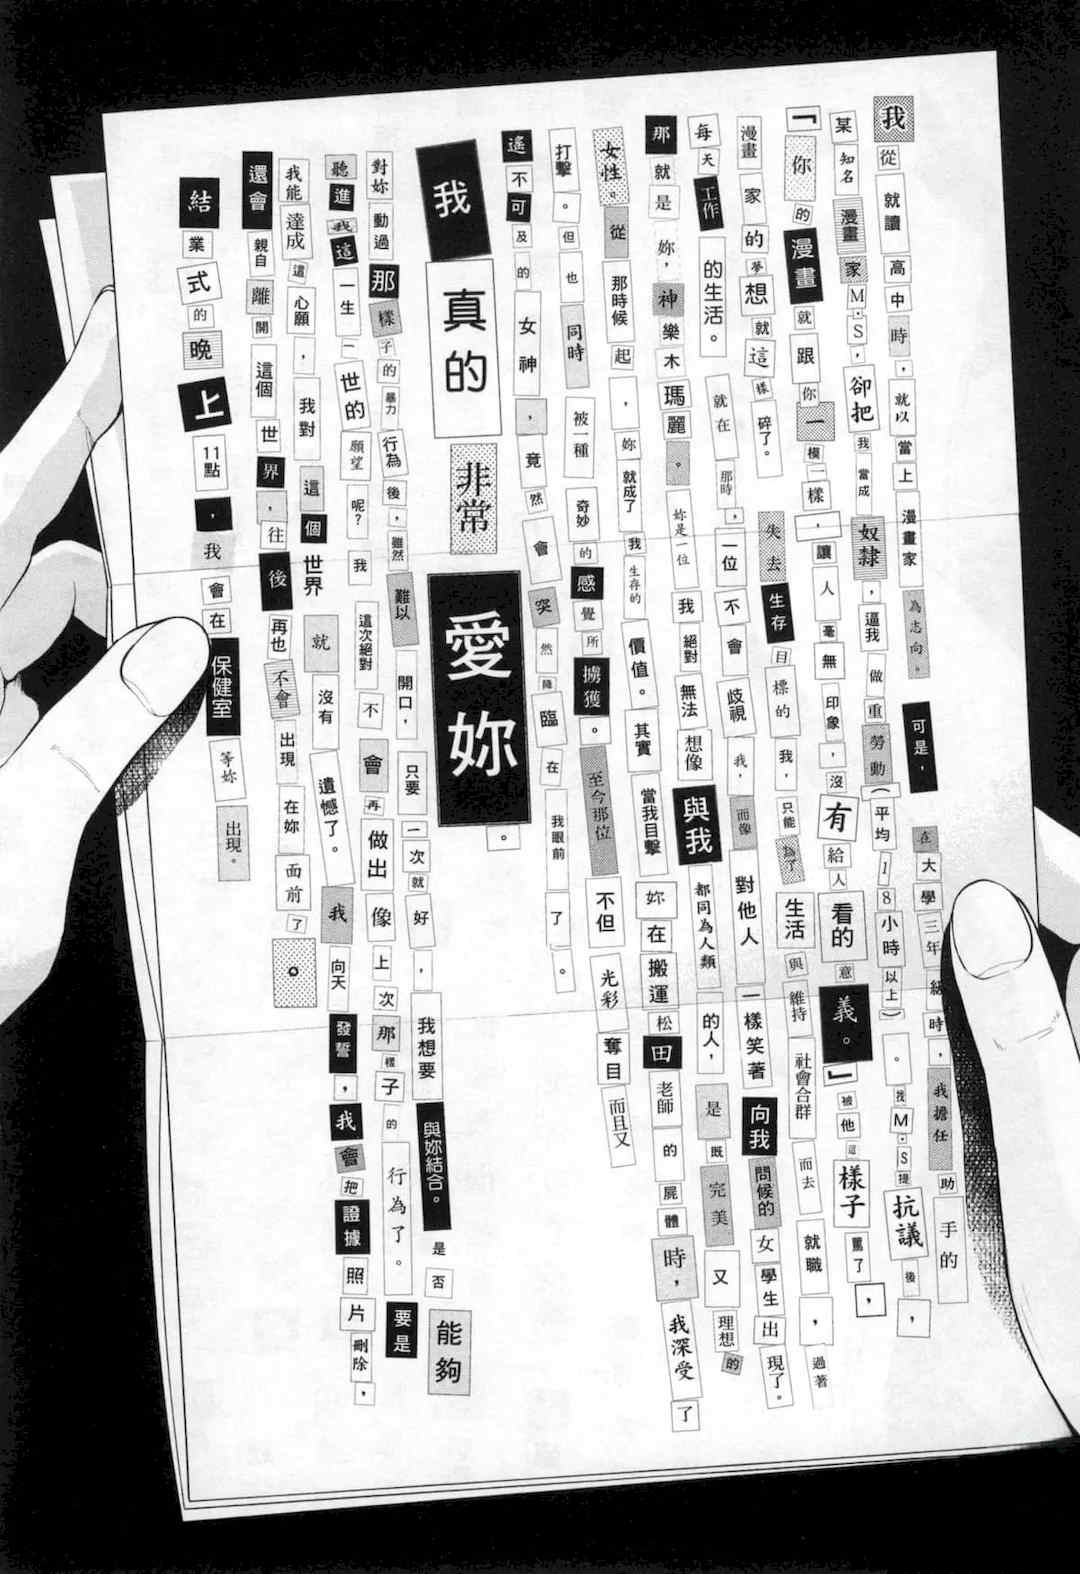 我從就讀高中時，就以當上漫畫家為志向。可是，在大學三年級時，我擔任助手的
某知名漫畫家M.S，卻把我當成奴隸，逼我做重勞動（平均18小時以上）。找M.S提抗議後，
『你的漫畫就跟你一模一樣，讓人毫無印象，沒有給人看的意義。』被他這樣子罵了，
漫畫家的夢想就這樣碎了。失去生存目標的我，只能為了生活與維持社會合群而去就職，過著
每天工作的生活。就在那時，一位不會歧視我，而像對他人一樣笑著向我問候的女學生出現了。
那就是妳，神樂木瑪麗。妳是一位我絕對無法想像與我都同為人類的人，是既完美又理想的
女性。從那時候起，妳就成了我生存的價值。其實當我目擊妳在搬運松田老師的屍體時，我深受了
打擊。但也同時被一種奇妙的感覺所擄獲。至今那位不但光彩奪目而且又
遙不可及的女神，竟然會突然降臨在我眼前了。
我真的非常愛妳。
對妳動過那樣子的暴力行為後，雖然難以開口，只要一次就好，我想要與妳結合。是否能夠
聽進我這一生一世的願望呢？我這次絕對不會再做出像上次那樣子的行為了。要是
我能達成這心願，我對這個世界就沒有遺憾了。我向天發誓，我會把證據照片刪除，
還會親自離開這個世界，往後再也不會出現在妳面前了。
結業式的晚上11點，我會在保健室等妳出現。